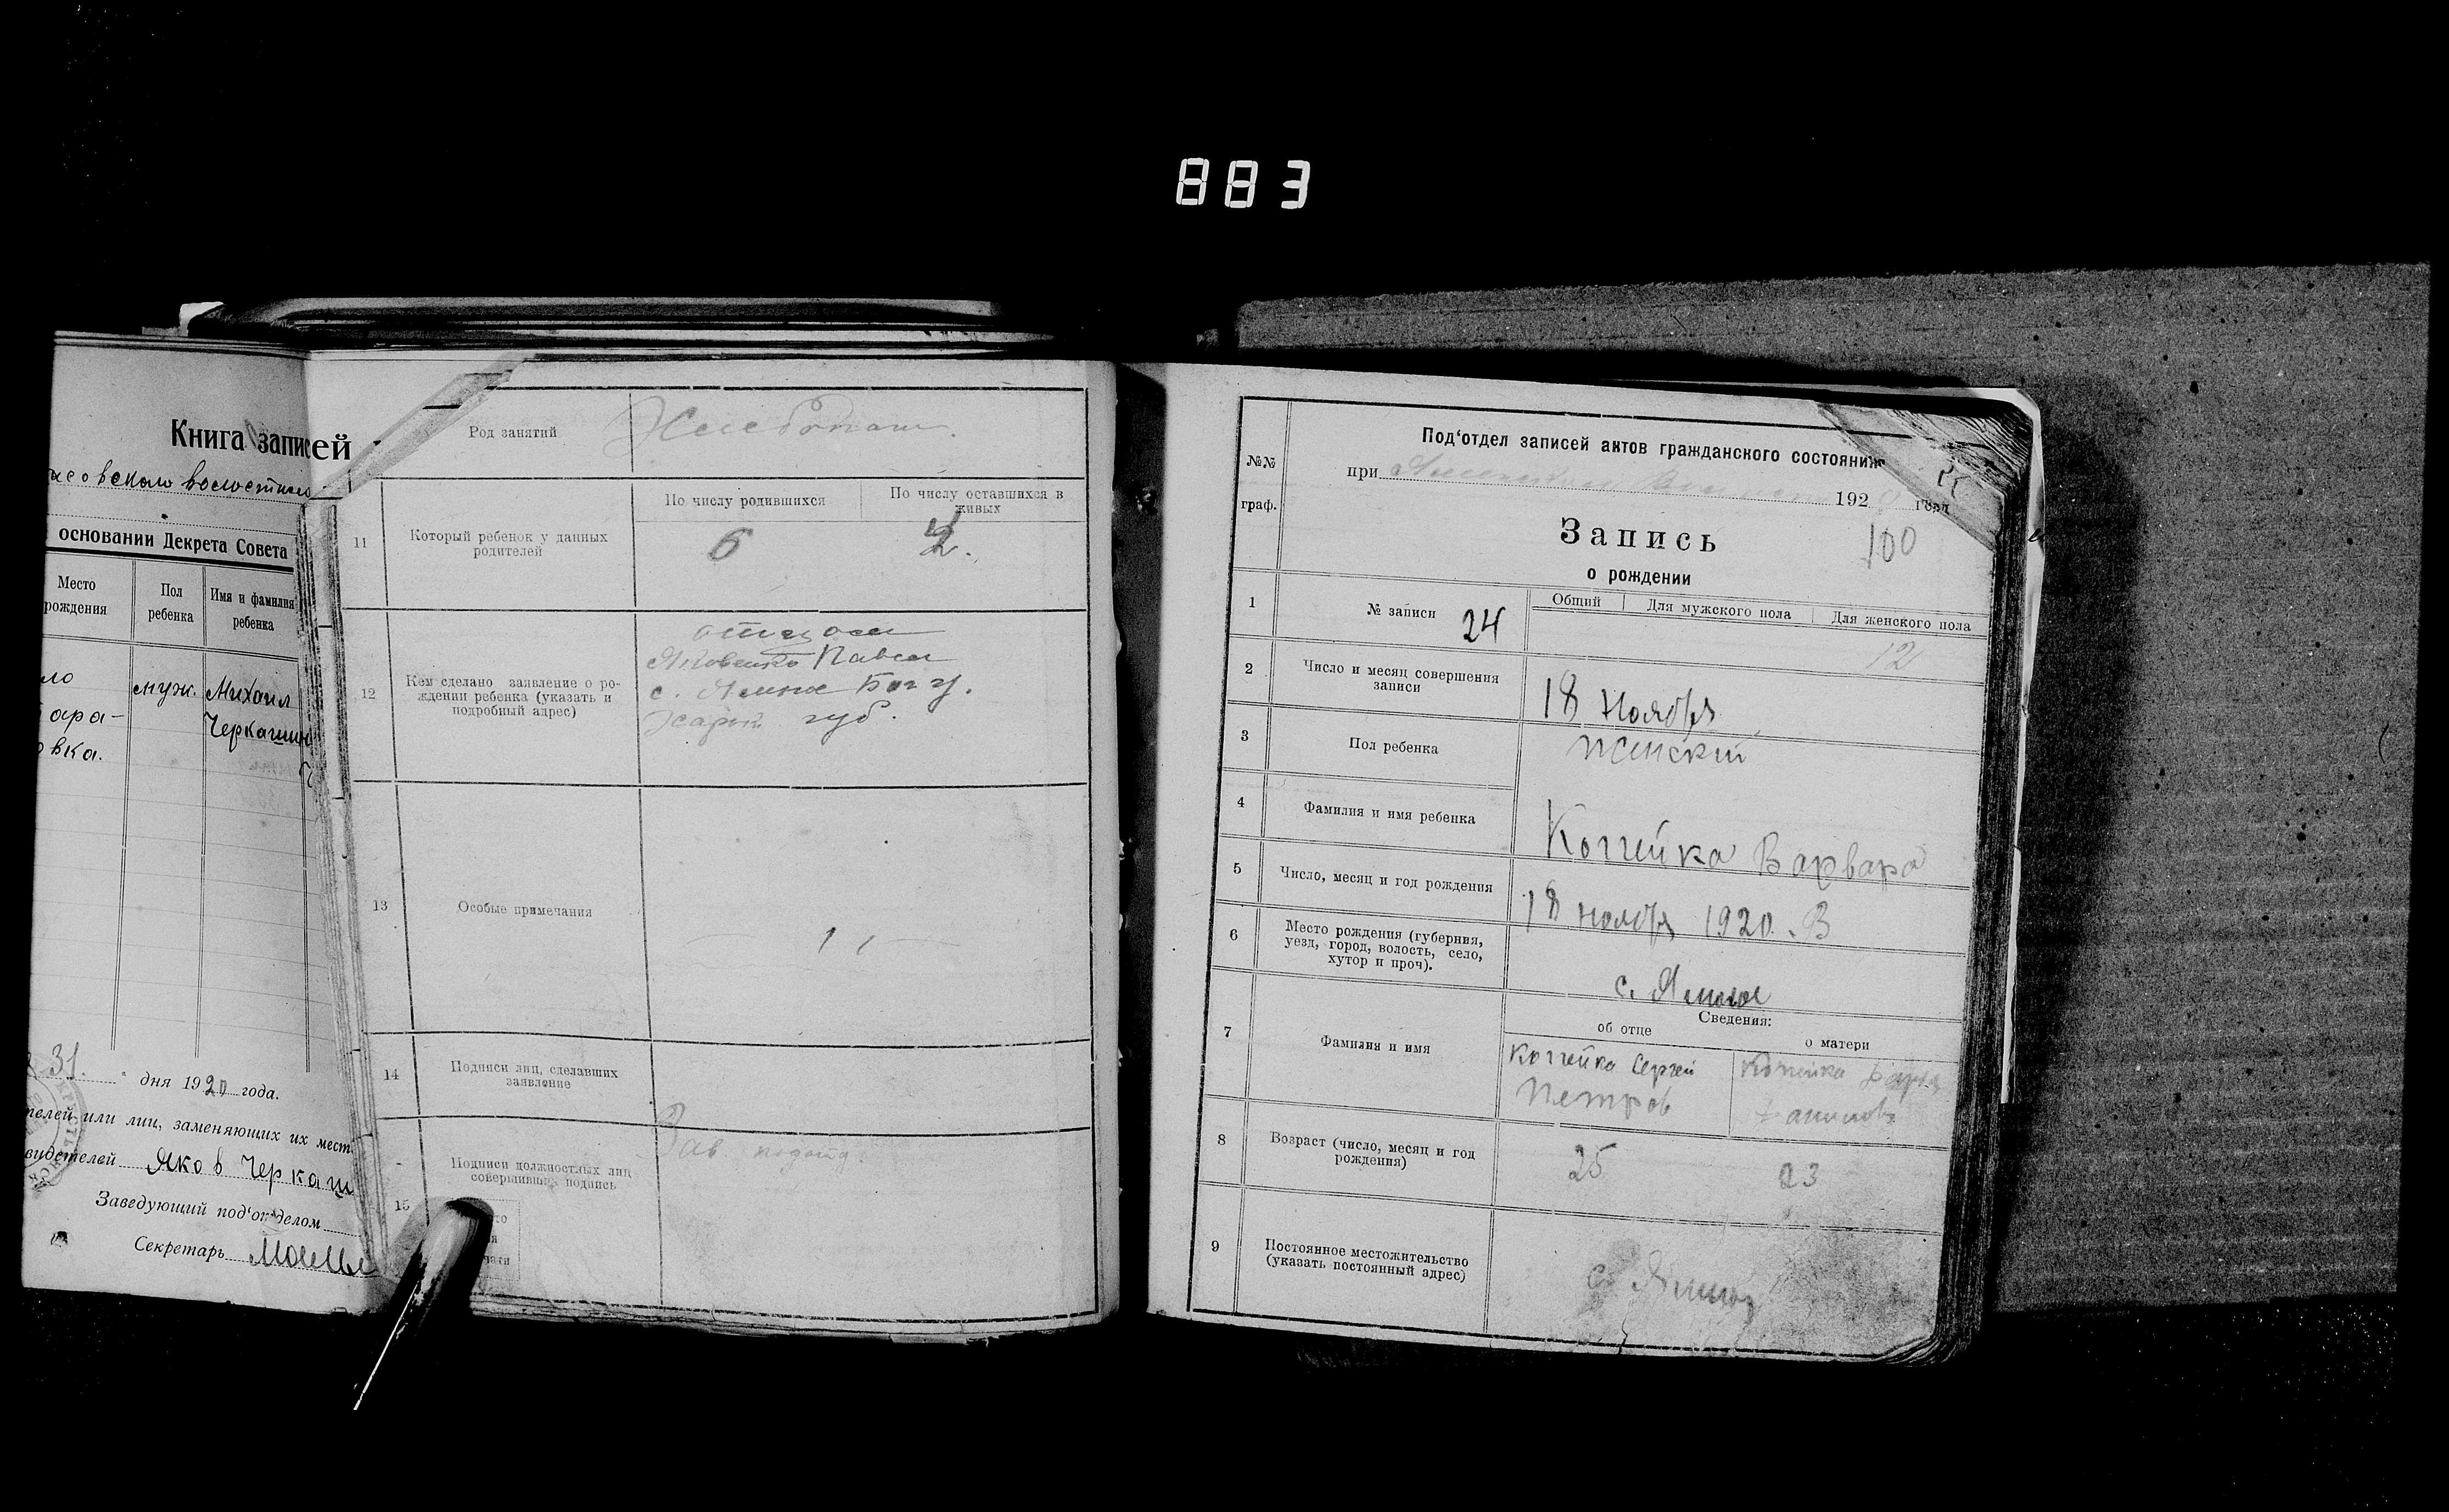 883
Книга записей
основании Декрета Совета
Место рождения
Пол ребенка
Имя и фамилия ребенка
муж.
Михаил
ара-
вка.
31. дня 1920 года.
телей или лиц, заменяющих их мест
видетелей Яков Черкаш
Заведующий под'отделом
Секретарь
Род занятий
11
Который ребенок у данных родителей
По числу родившихся
По числу оставшихся в живых
6
2.
12
Кем сделано заявление о рождении ребенка (указать и подробный адрес)
отцом
Яковенко Павел
с. Ямное Бог у.
Харьк губ.
13
Особые примечания
14
Подписи лиц, сделавших заявление
15
Подписи должностных лиц совершивших подпись
Зав. подотд.
№№ граф.
Под'отдел записей актов гражданского состояния
при 1920 год
Запись
100
о рождении
1
№ записи 24
Общий
Для мужского пола
Для женского пола
12
2
Число и месяц совершения записи
18 Ноября
3
Пол ребенка
женский
4
Фамилия и имя ребенка
Копейка Варвара
5
Число, месяц и год рождения
18 ноября 1920. В
6
Место рождения (губерния, уезд, город, волость, село, хутор и проч).
с. Ямное
Сведения:
об отце
о матери
7
Фамилия и имя
Копейка Сергей
Петров
Копейка
8
Возраст (число, месяц и год рождения)
25
23
9
Постоянное местожительство (указать постоянный адрес)
с. Ямное